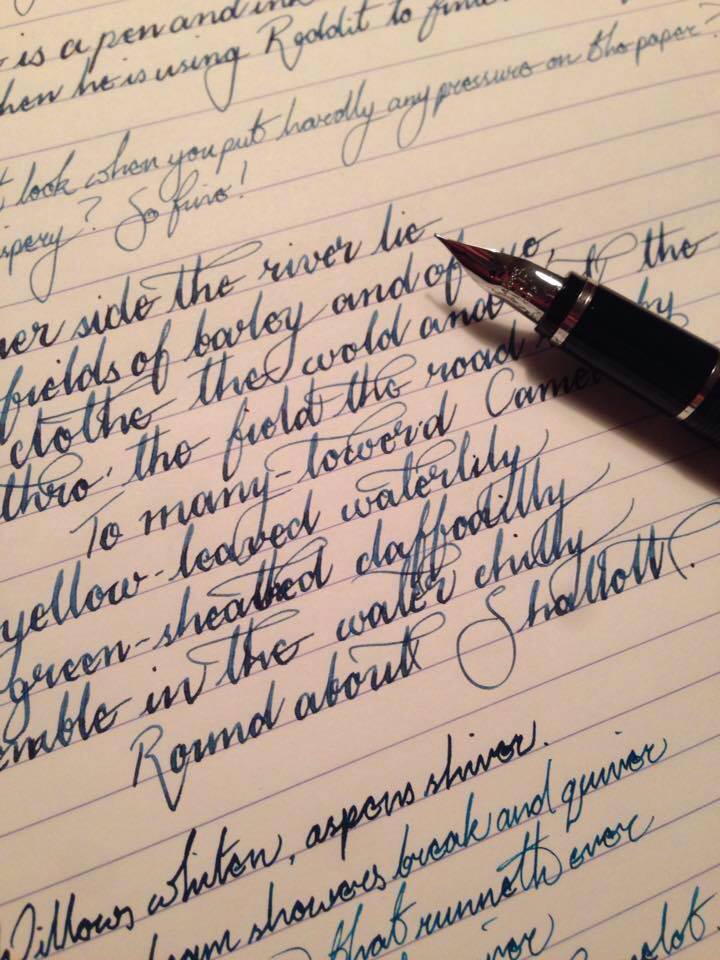 is a pen and ink
when he is using Reddit to find
look when you put hardly any pressure on the paper?
spery? So fine!
her side the river lie
fields of barley and of rye,
clothe the wold and the
thro' the field the road by
To many-tower'd Camel
yellow-leaved waterlily
green-sheathed daffodilly
emble in the water chilly
Round about Shallott.
Willows whiten, aspens shiver.
eam showers break and quiver
that runneth ever
iver
melot.